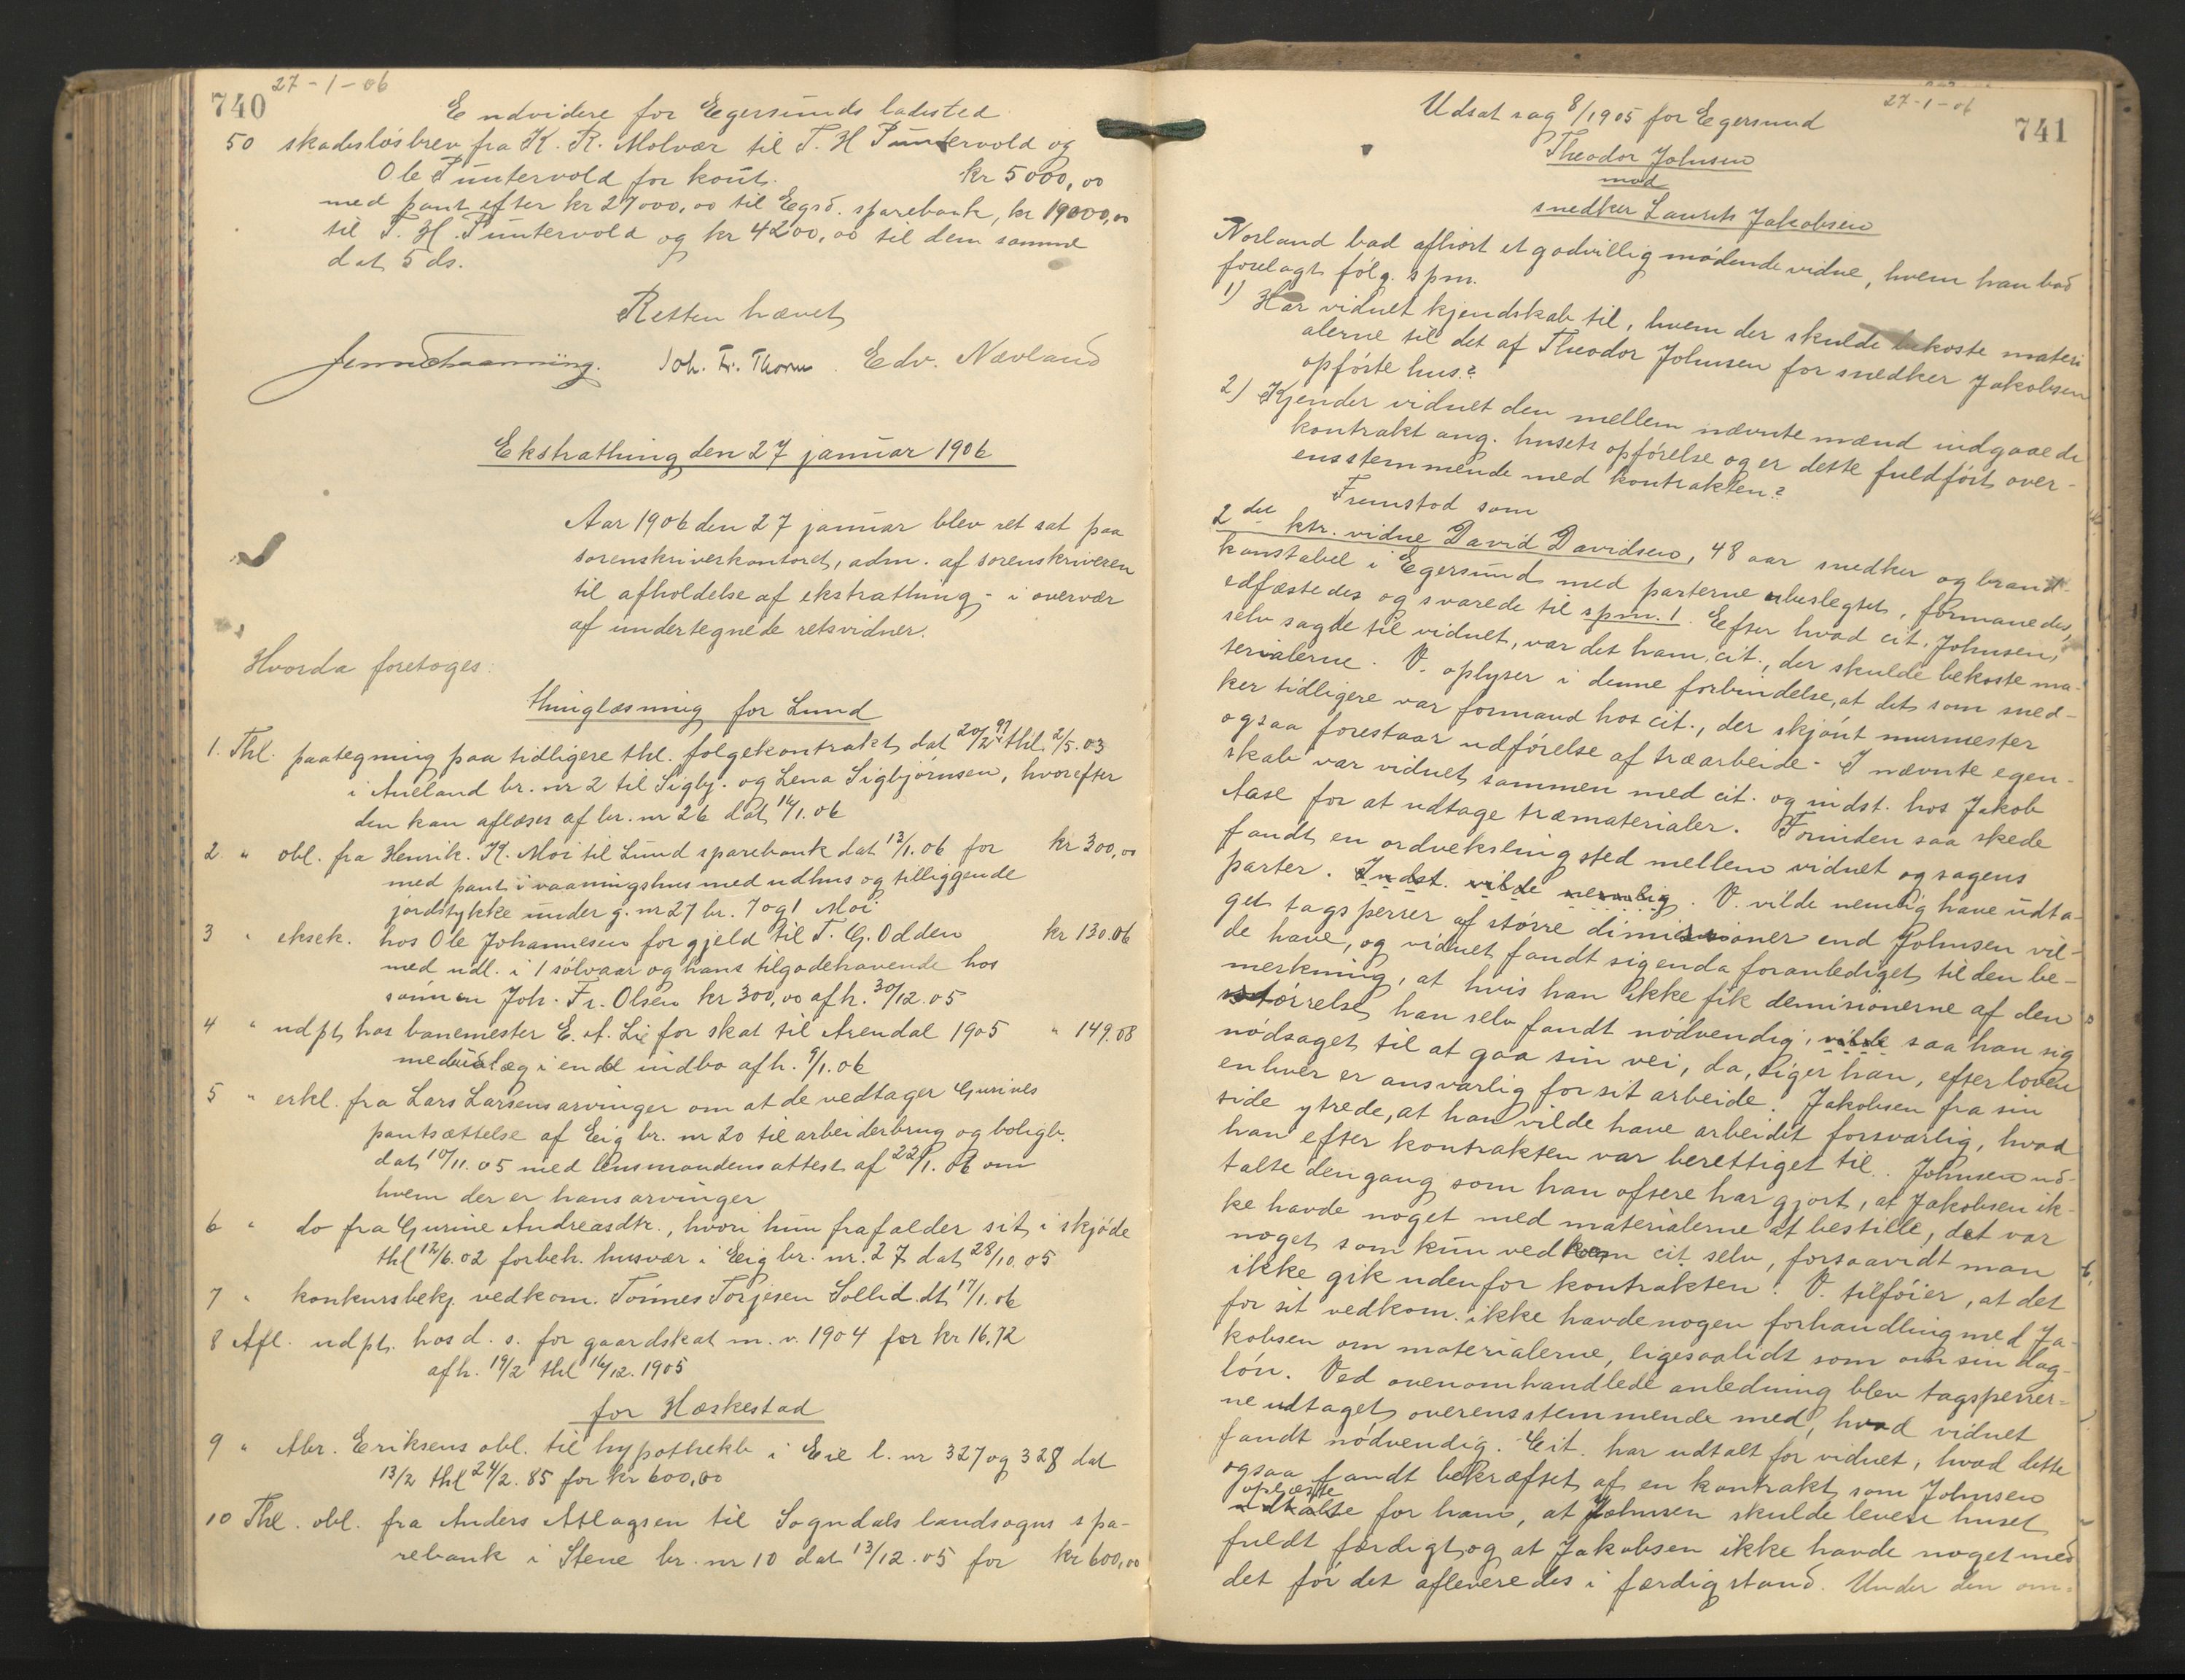 740
27-1-06
Endvidere for Egersunds ladested
50 skadesløsbrev fra K. R. Molvær til T. H Puntervold og
Ole Puntervold for kont. kr 5000,00
med pant efter kr 27000,00 til Egsd. sparebank, kr 19000,00
til T. H. Puntervold og kr 4200,00 til dem samme
dat 5 ds.
Retten hævet
Joh. Fr. Thorsen. Edv. Nævland
Ekstrathing den 27 januar 1906
Aar 1906 den 27 januar blev ret sat paa
sorenskriverkontoret, adm. af sorenskriveren
til afholdelse af ekstrathing - i overvær
af undertegnede retsvidner.
Hvorda foretoges:
thinglæsning for Lund
1. Thl. paategning paa tidligere thl. følgekontrakt dat 20/2 97 thl. 2/5.03
i Aueland br. nr 2 til Sigbj. og Lena Sigbjørnsen, hvorefter
den kan aflæses af br. nr 26 dat 14/1.06
2. " obl. fra Henrik. K. Moi til Lund sparebank dat 13/1.06 for kr 300,00
med pant i vaaningshus med udhus og tilliggende
jordstykke under g. nr 27 br. 7 og 1 Moi
3 " eksek. hos Ole Johannesen for gjeld til T. G. Odden kr 130.06
med udl. i 1 sølvaar og hans tilgodehavende hos
sønnen Joh. Fr. Olsen kr 300,00 afh. 30/12.05
4 " udpt hos banemester E. A. Lie for skat til Arendal 1905 " 149.08
med udlæg i endel indbo afh. 9/1.06
5 " erkl. fra Lars Larsens arvinger om at de vedtager Gurines
pantsættelse af Eig br. nr 20 til arbeiderbrug og boligb.
dat 10/11.05 med lensmandens attest af 22/1.06 om
hvem der er hans arvinger
6 " do fra Gurine Andreasdtr., hvori hun frafalder sit i skjøde
thl 12/6.02 forbeh. husvær i Eig br. nr. 27 dat 28/10.05
7 " konkursbekj. vedkom. Tønnes Torjesen Sollid dt 17/1.06
8 Afl. udpt. hos d. s. for gaardskat m. v. 1904 for kr 16,72
afh. 19/2 thl 16/12.1905
for Hæskestad
9 " Abr. Eriksens obl. til hypothekb i Eie l. nr 327 og 328 dat
13/2 thl 24/2.85 for kr 600,00
10 Thl. obl. fra Anders Atlagsen til Sogndals landsogns spa-
rebank i Stene br. nr 10 dat 13/12.05 for kr 600,00
27-1-06
741
Udsat sag 8/1905 for Egersund
Theodor Johnsen
mod
snedker Laurits Jakobsen
Norland bad afhørt et godvillig mødende vidne, hvem han bad
forelagt følg. spm.
1) Har vidnet kjendskab til, hvem der skulde bekoste materi
alerne til det af Theodor Johnsen for snedker Jakobsen
opførte hus?
2) Kjender vidnet den mellem nævnte mænd indgaaede
kontrakt ang. husets opførelse og er dette fuldført over-
ensstemmende med kontrakten?
Fremstod som
2det ktr. vidne David Davidsen, 48 aar snedker og brand-
konstabel i Egersund med parterne ubeslegtet, formanedes,
edfæstedes og svarede til spm. 1. Efter hvad cit. Johnsen,
selv sagde til vidnet, var det ham, cit., der skulde bekoste ma-
terialerne. V. oplyser i denne forbindelse, at det som sned-
ker tidligere var formand hos cit., der skjønt murmester
ogsaa forestaar udførelse af træarbeide. I nævnte egen-
skab var vidnet sammen med cit. og indst. hos Jakob
Aase for at udtage træmaterialer. Forinden saa skede
fandt en ordveksling sted mellem vidnet og sagens
parter. Indst. vilde nemlig. V. vilde nemlig have udta-
get tagsperrer af større dimissioner end Johnsen vil-
de have, og vidnet fandt sig enda foranlediget til den be-
merkning, at hvis han ikke fik demisionerne af den
størrelse han selv fandt nødvendig, vilde saa han sig
nødsaget til at gaa sin vei, da, siger han, efter loven
enhver er ansvarlig for sit arbeide. Jakobsen fra sin
side ytrede, at han vilde have arbeidet forsvarlig, hvad
han efter kontrakten var berettiget til. Johnsen ud-
talte dengang som han oftere har gjort, at Jakobsen ik-
ke havde noget med materialerne at bestille, det var
noget som kun vedkom cit selv, forsaavidt man
ikke gik udenfor kontrakten. V. tilføier, at det
for sit vedkom. ikke havde nogen forhandling med Ja-
kobsen om materialerne, ligesaalidt som om sin dag-
løn. Ved ovenomhandlede anledning blev tagsperrer-
ne udtaget overensstemmende med, hvad vidnet
fandt nødvendig. Cit. har udtalt for vidnet, hvad dette
ogsaa fandt bekræftet af en kontrakt som Johnsen
oplæste
udtalte for ham, at Johnsen skulde levere huset
fuldt færdigt, og at Jakobsen ikke havde noget med
det før det afleveredes i færdig stand. Under den om-